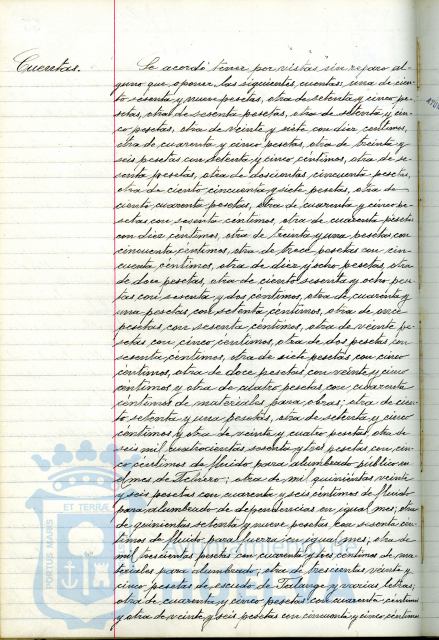 Cuentas.
Se acordó tener por vistas sin reparo al-
guno que oponer, las siguientes cuentas; una de cien-
to sesenta y nueve pesetas, otra de setenta y cinco pe-
setas, otra de sesenta pesetas, otra de setenta y cin-
co pesetas, otra de veinte y siete con diez céntimos,
otra de cuarenta y cinco pesetas, otra de treinta y
seis pesetas con setenta y cinco céntimos, otra de se-
senta pesetas, otra de doscientas cincuenta pesetas,
otra de ciento cincuenta y siete pesetas, otra de
ciento cuarenta pesetas, otra de cuarenta y cinco pe-
setas con sesenta céntimos, otra de cuarenta pesetas
con diez céntimos, otra de treinta y una pesetas con
cincuenta céntimos, otra de trece pesetas con cin-
cuenta céntimos, otra de diez y ocho pesetas, otra
de doce pesetas, otra de ciento sesenta y ocho pese-
tas con sesenta y dos céntimos, otra de cuarenta y
una pesetas con setenta céntimos, otra de once
pesetas con sesenta céntimos, otra de veinte pe-
setas con cinco céntimos, otra de dos pesetas con
sesenta céntimos, otra de siete pesetas con cinco
céntimos, otra de doce pesetas con veinte y cinco
céntimos y otra de cuatro pesetas con cuarenta
céntimos de materiales para obras; otra de cien-
to setenta y una pesetas, otra de setenta y cinco
céntimos y otra de veinte y cuatro pesetas, otra de
seis mil cuatrocientas sesenta y tres pesetas con cin-
co céntimos de fluido para alumbrado público en
el mes de Febrero; otra de mil quinientas veinte
y seis pesetas con cuarenta y seis céntimos de fluido
para alumbrado de dependencias en igual mes; otra
de quinientas setenta y nueve pesetas con sesenta cén-
timos de fluido para fuerza en igual mes; otra de
mil trescientas pesetas con cuarenta y tres céntimos de ma-
teriales para alumbrado; otra de trescientas veinte y
cinco pesetas de escudo de Talange y varias letras;
otra de cuarenta y cinco pesetas con cuarenta céntimos
y otra de veinte y seis pesetas con cincuenta y cinco céntimos
ET TERRAE
PORTUS MARIS